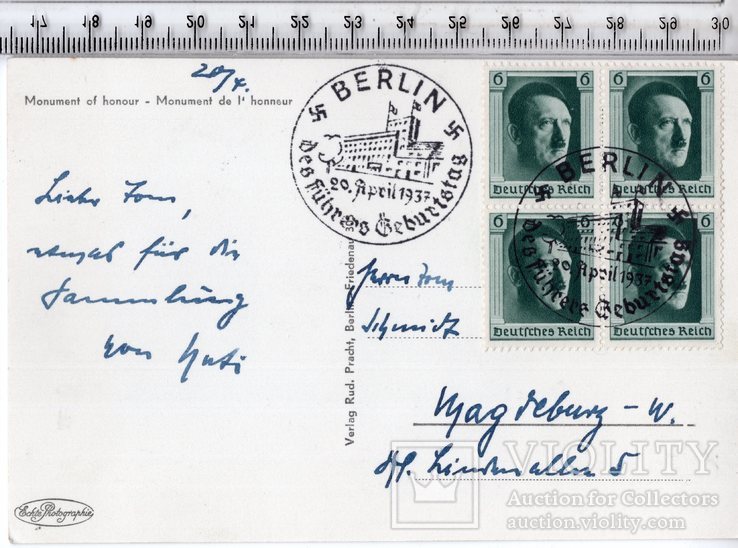 17 18 19 20 21 22 23 24 25 26 27 28 29 30
20/4.
Monument of honour - Monument de l' honneur
BERLIN
20. April 1937
des Führers Geburtstag
6 6
6 6
Deutsches Reich Deutsches Reich
6 6
Deutsches Reich Deutsches Reich
BERLIN
20. April 1937
des Führers Geburtstag
etwas für die
Sammlung
von
Verlag Rud. Pracht, Berlin-Friedenau
Herrn
Schmidt
Magdeburg - W.
5
Echte Photographie
VIOLITY
Auction for Collectors
auction.violity.com